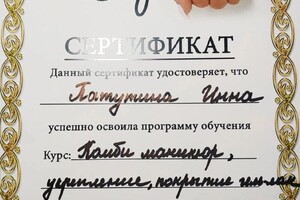 СЕРТИФИКАТ
Данный сертификат удостоверяет, что
Патутина Инна
успешно освоила программу обучения
Курс: Комби маникюр,
укрепление, покрытие гель-лак